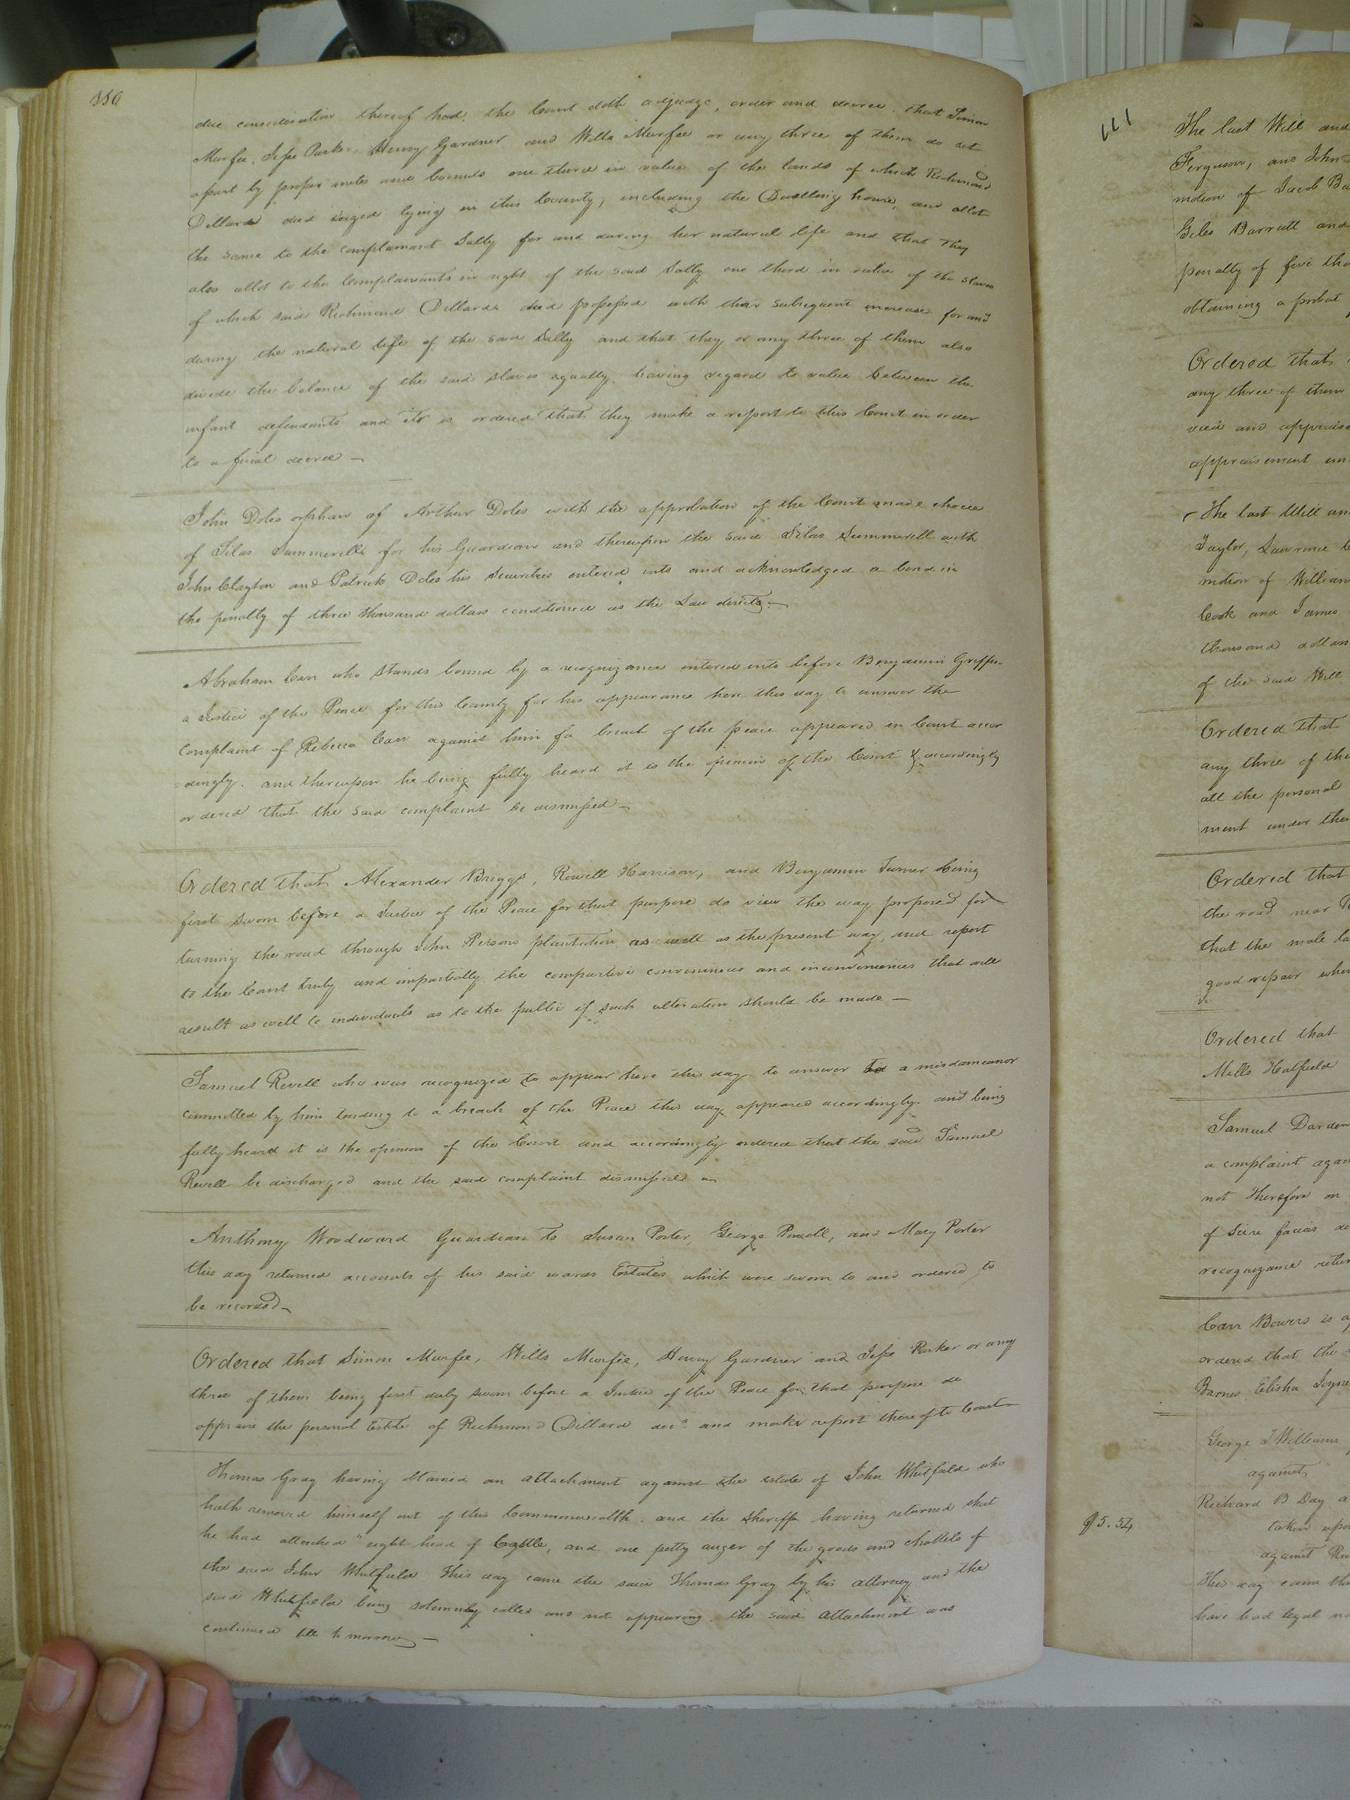 116
due consideration thereof had, the Court doth adjudge, order and decree that Simon
Murfee, Jesse Parker, Henry Gardner and Wills Murfee or any three of them do set
apart by proper metes and bounds one third in value of the lands of which Richmond
Dillard died seized lying in this County, including the Dwelling house, and allot
the same to the complainant Sally for and during her natural life and that they
also allot to the Complainants in right of the said Sally one third in value of the slaves
of which said Richmond Dillard died possessed with their subsequent increase for and
during the natural life of the said Sally and that they or any three of them also
divide the balance of the said slaves equally having regard to value between the
infant defendants and it is ordered that they make a report to this Court in order
to a final decree —
John Doles orphan of Arthur Doles with the approbation of the Court made choice
of Silas Summerell for his Guardian and thereupon the said Silas Summerell with
John Clayton and Patrick Doles his Securities entered into and acknowledged a bond in
the penalty of three thousand dollars conditioned as the Law directs —
Abraham Carr who stands bound by a recognizance entered into before Benjamin Griffin
a Justice of the Peace for this County for his appearance here this day to answer the
complaint of Rebecca Carr against him for breach of the peace appeared in Court accor
dingly. and thereupon he being fully heard it is the opinion of the Court & accordingly
ordered that the said complaint be dismissed —
Ordered that Alexander Briggs, Rowell Harrison, and Benjamin Turner being
first sworn before a Justice of the Peace for that purpose do view the way proposed for
turning the road through John Persons plantation as well as the present way, and report
to the Court truly and impartially the comparitive conveniences and inconveniences that will
result as well to individuals as to the public if such alteration should be made —
Samuel Revell who was recognized to appear here this day to answer to a misdemeanor
committed by him tending to a breach of the Peace this day appeared accordingly and being
fully heard it is the opinion of the Court and accordingly ordered that the said Samuel
Revell be discharged and the said complaint dismissed
Anthony Woodward Guardian to Susan Porter, George Powell, and Mary Porter
this day returned accounts of his said wards Estates which were sworn to and ordered to
be recorded —
Ordered that Simon Murfee, Wills Murfee, Henry Gardner and Jesse Parker or any
three of them being first duly sworn before a Justice of the Peace for that purpose do
appraise the personal Estate of Richmond Dillard decd and make report thereof to Court
Thomas Gray having obtained an attachment against the estate of John Whitfield who
hath removed himself out of this Commonwealth, and the Sheriff having returned that
he had attached "eight head of Cattle, and one petty auger of the goods and chattels of
the said John Whitfield This day came the said Thomas Gray by his attorney and the
said Whitfield being solemnly called and not appearing, the said attachment was
continued till to morrow —
The last Will and
Ferguson, and John
motion of Jacob Ba
Giles Barrett and
penalty of five tho
obtaining a probat
Ordered that
any three of them
view and appraise
appraisement
The last Will an
Taylor, Lawrence
motion of William
Cook and James
thousand
of the said Will
Ordered that
any three of the
all the personal
ment under the
Ordered that
the road near
that the male la
good repair whe
Ordered that
Mills Hatfield
Samuel Darden
a complaint again
not therefore on
of Scire facias
recognizance retur
Carr Bowers is
ordered that the
Barnes Elisha Joyne
George J Williams
against
Richard B Day a
$5.54 taken upon
against
This day came th
have had legal no